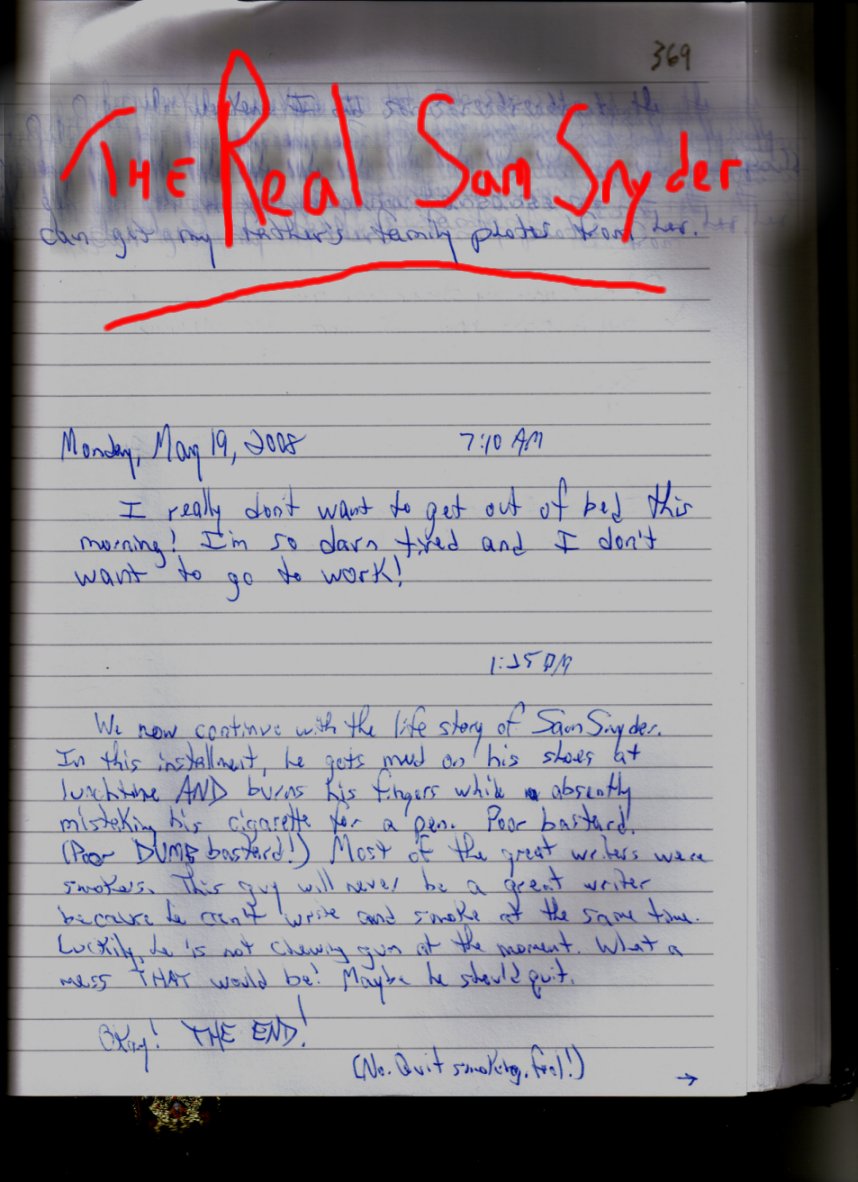 369
THE Real Sam Snyder
can get my father's family photos from her.
Monday, May 19, 2008 7:10 AM
I really don't want to get out of bed this
morning! I'm so darn tired and I don't
want to go to work!
1:25 PM
We now continue with the life story of Sam Snyder.
In this installment, he gets mud on his shoes at
lunchtime AND burns his fingers while absently
misteking his cigarette for a pen. Poor bastard.
(Poor DUMB bastard!) Most of the great writers were
smokers. This guy will never be a great writer
because he can't write and smoke at the same time.
Luckily, he is not chewing gum at the moment. What a
mess THAT would be! Maybe he should quit.
Okay! THE END!
(No. Quit smoking, fool!)
→